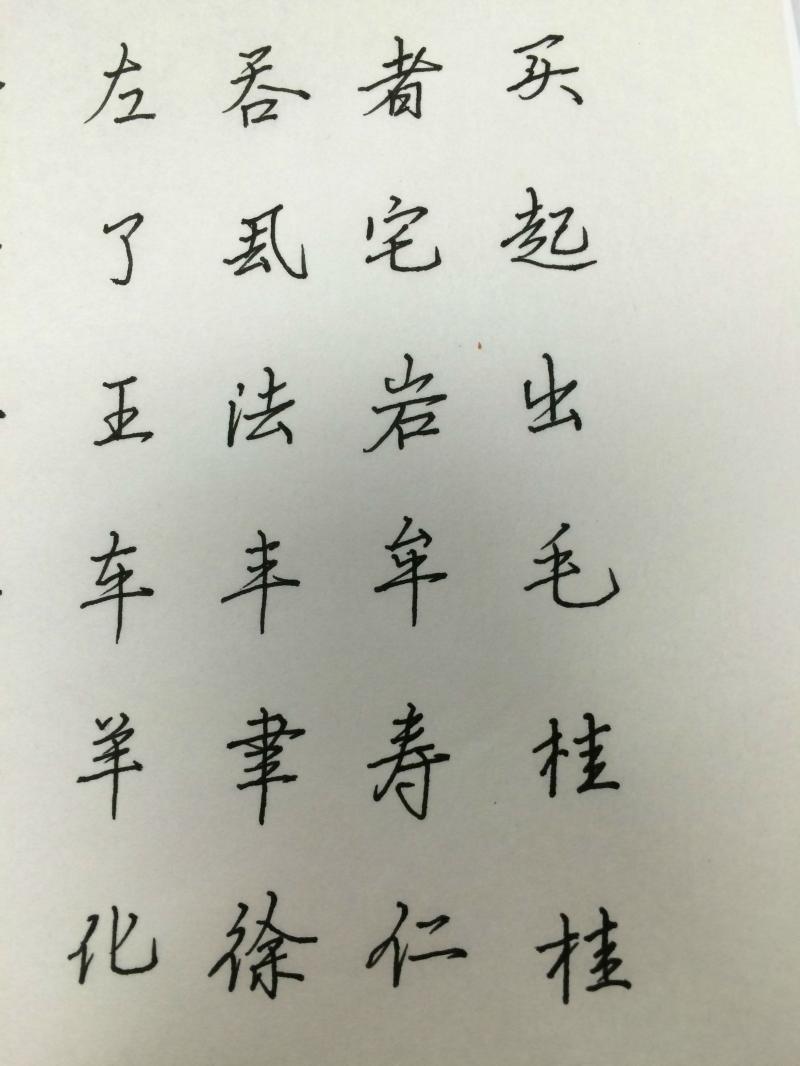 左吞者买
了虱宅起
王法岩出
车丰牟毛
羊聿寿桂
化徐仁桂